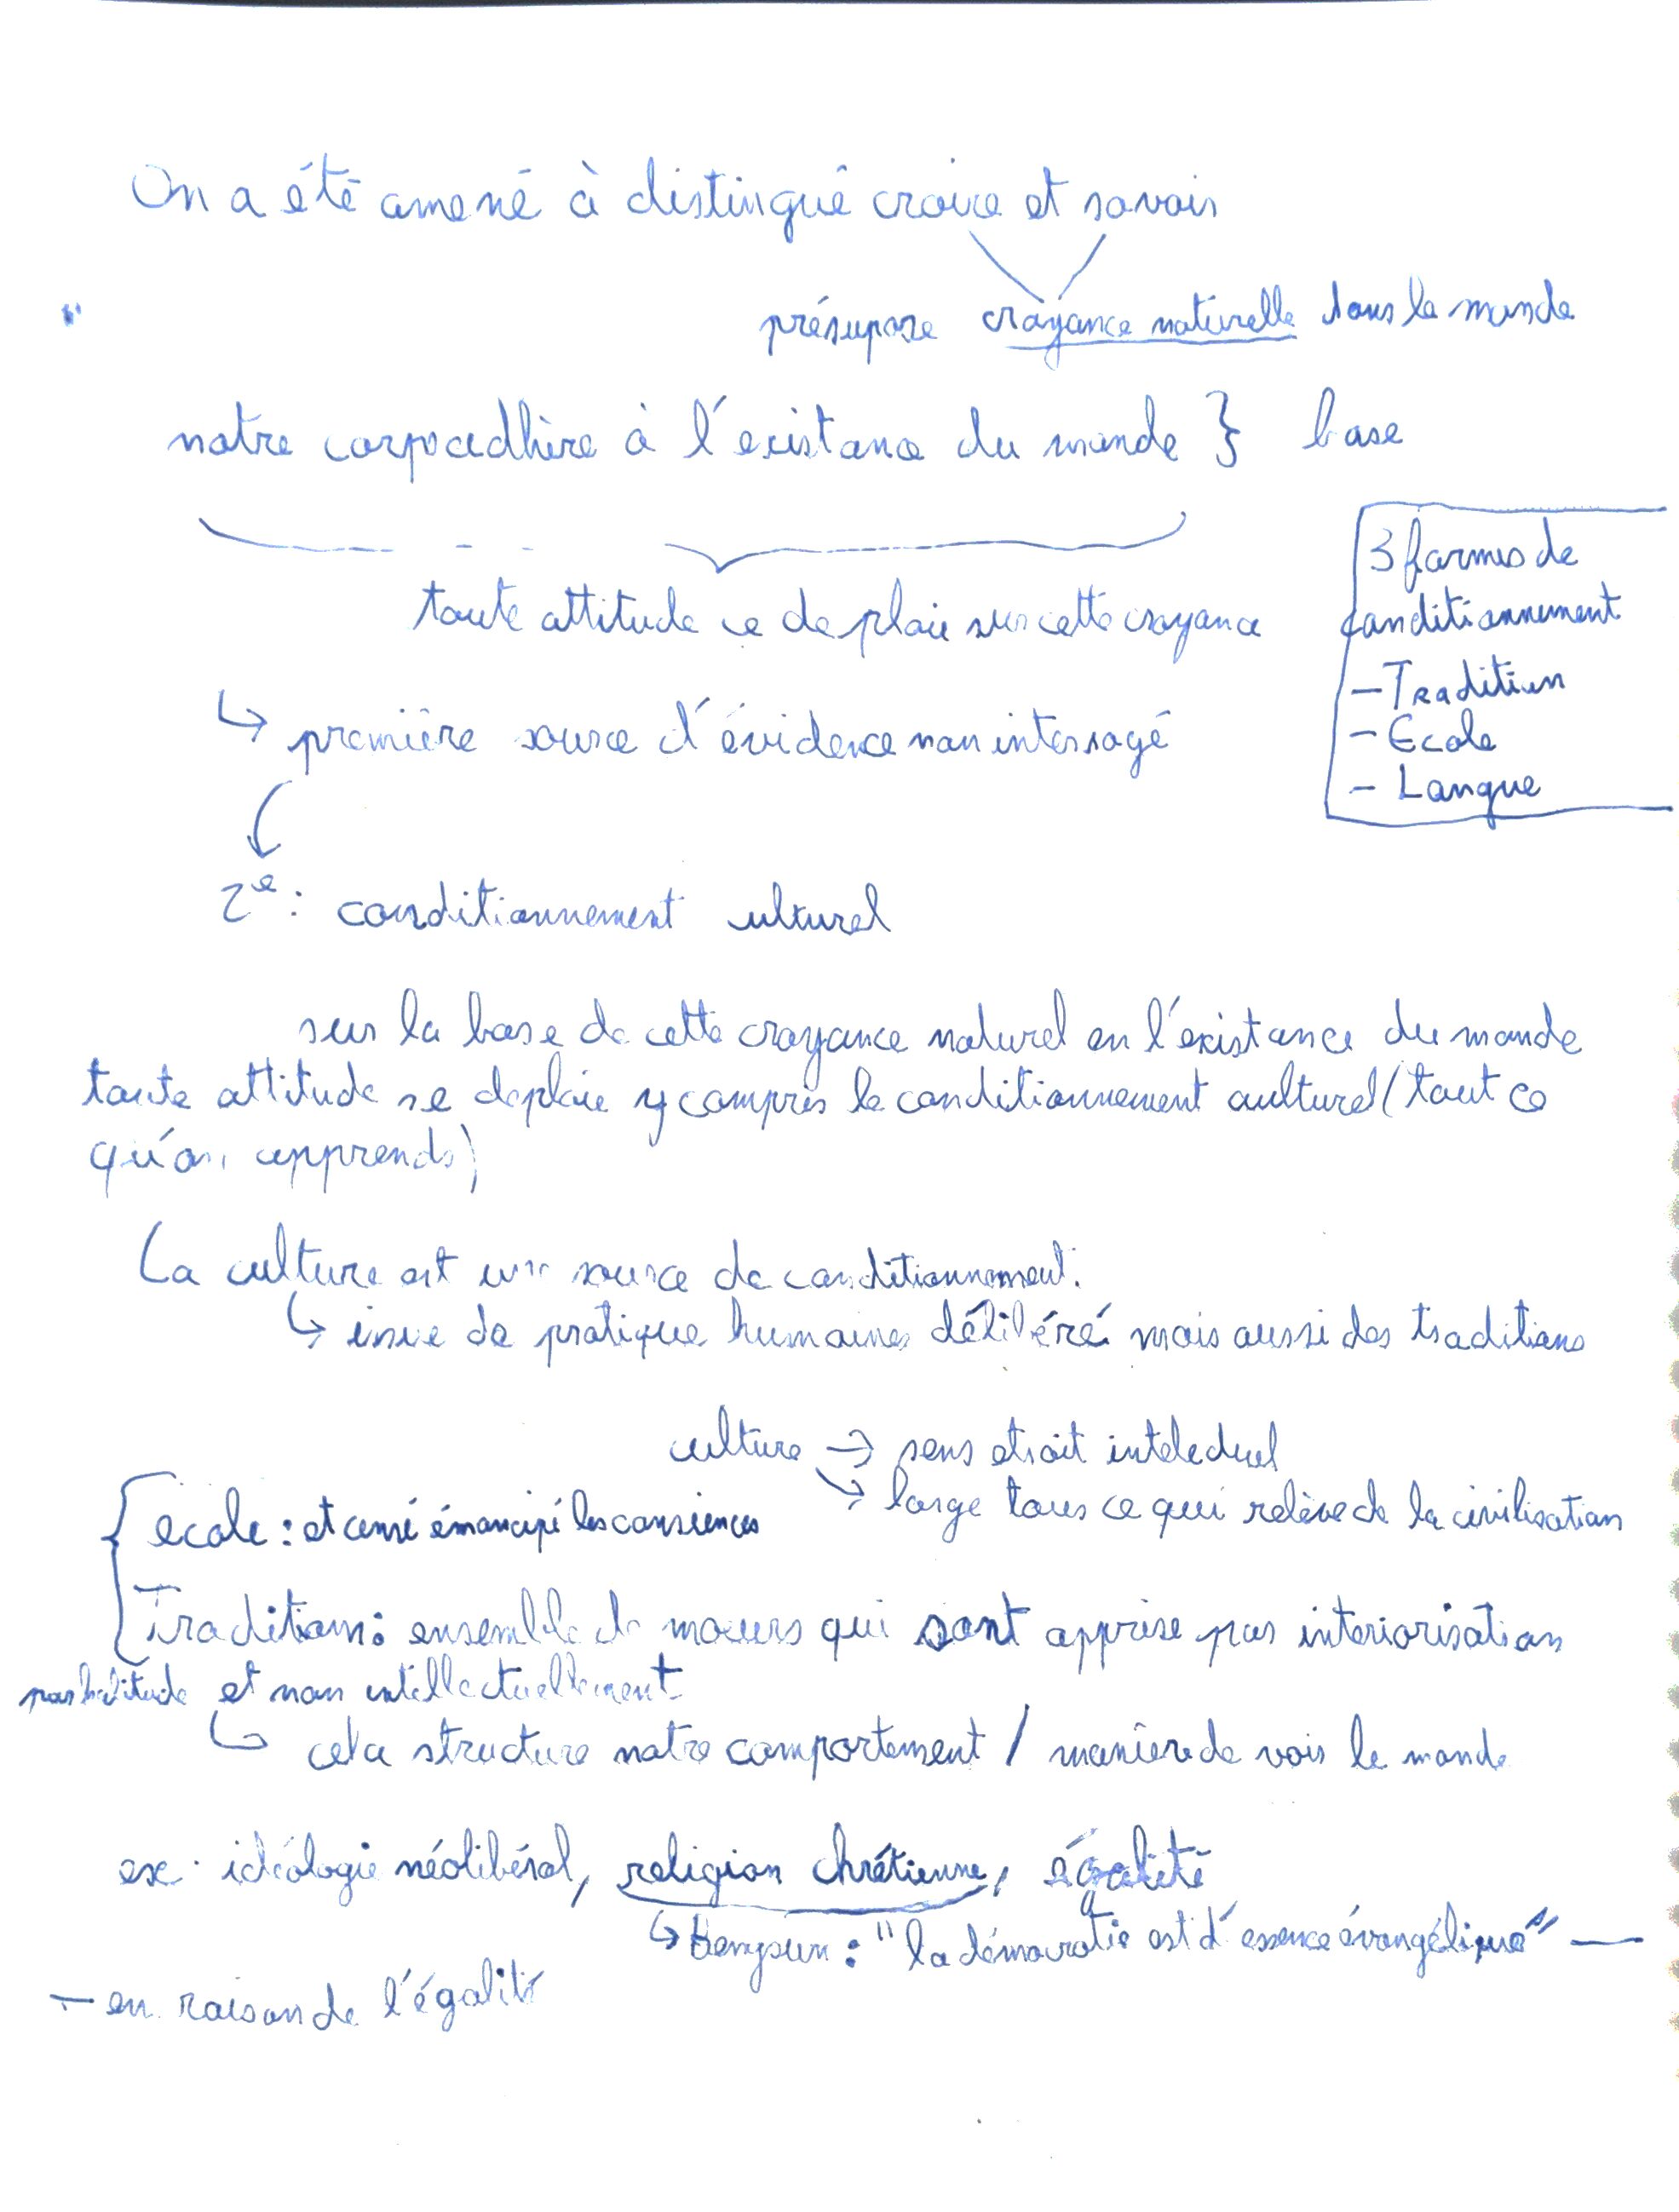 On a été amené à distingué croire et savoir
présupose croyance naturelle dans le monde
notre corps adhère à l'existance du monde } base
toute attitude ce de plaie sur cette croyance
3 formes de
conditionnement
- Tradition
- Ecole
- Langue
↳ première source d'évidence non interrogé
2e : conditionnement culturel
sur la base de cette croyance naturel en l'existance du monde
toute attitude se deplaie y compris le conditionnement culturel (tout ce
qu'on apprends)
La culture est une source de conditionnement.
↳ issue de pratique humaines délibéré mais aussi des traditions
culture → sens etroit intelectuel
↘ large tous ce qui relève de la civilisation
école : et censé émancipé les consciences
Tradition : ensemble de moeurs qui sont apprise par interiorisation
par habitude et non intellectuellement
↳ cela structure notre comportement / manière de voir le monde
ex : idéologie néolibéral, religion chrétienne, égalité
↳ Bergson : "la démocratie est d'essence évangélique" —
— en raison de l'égalité